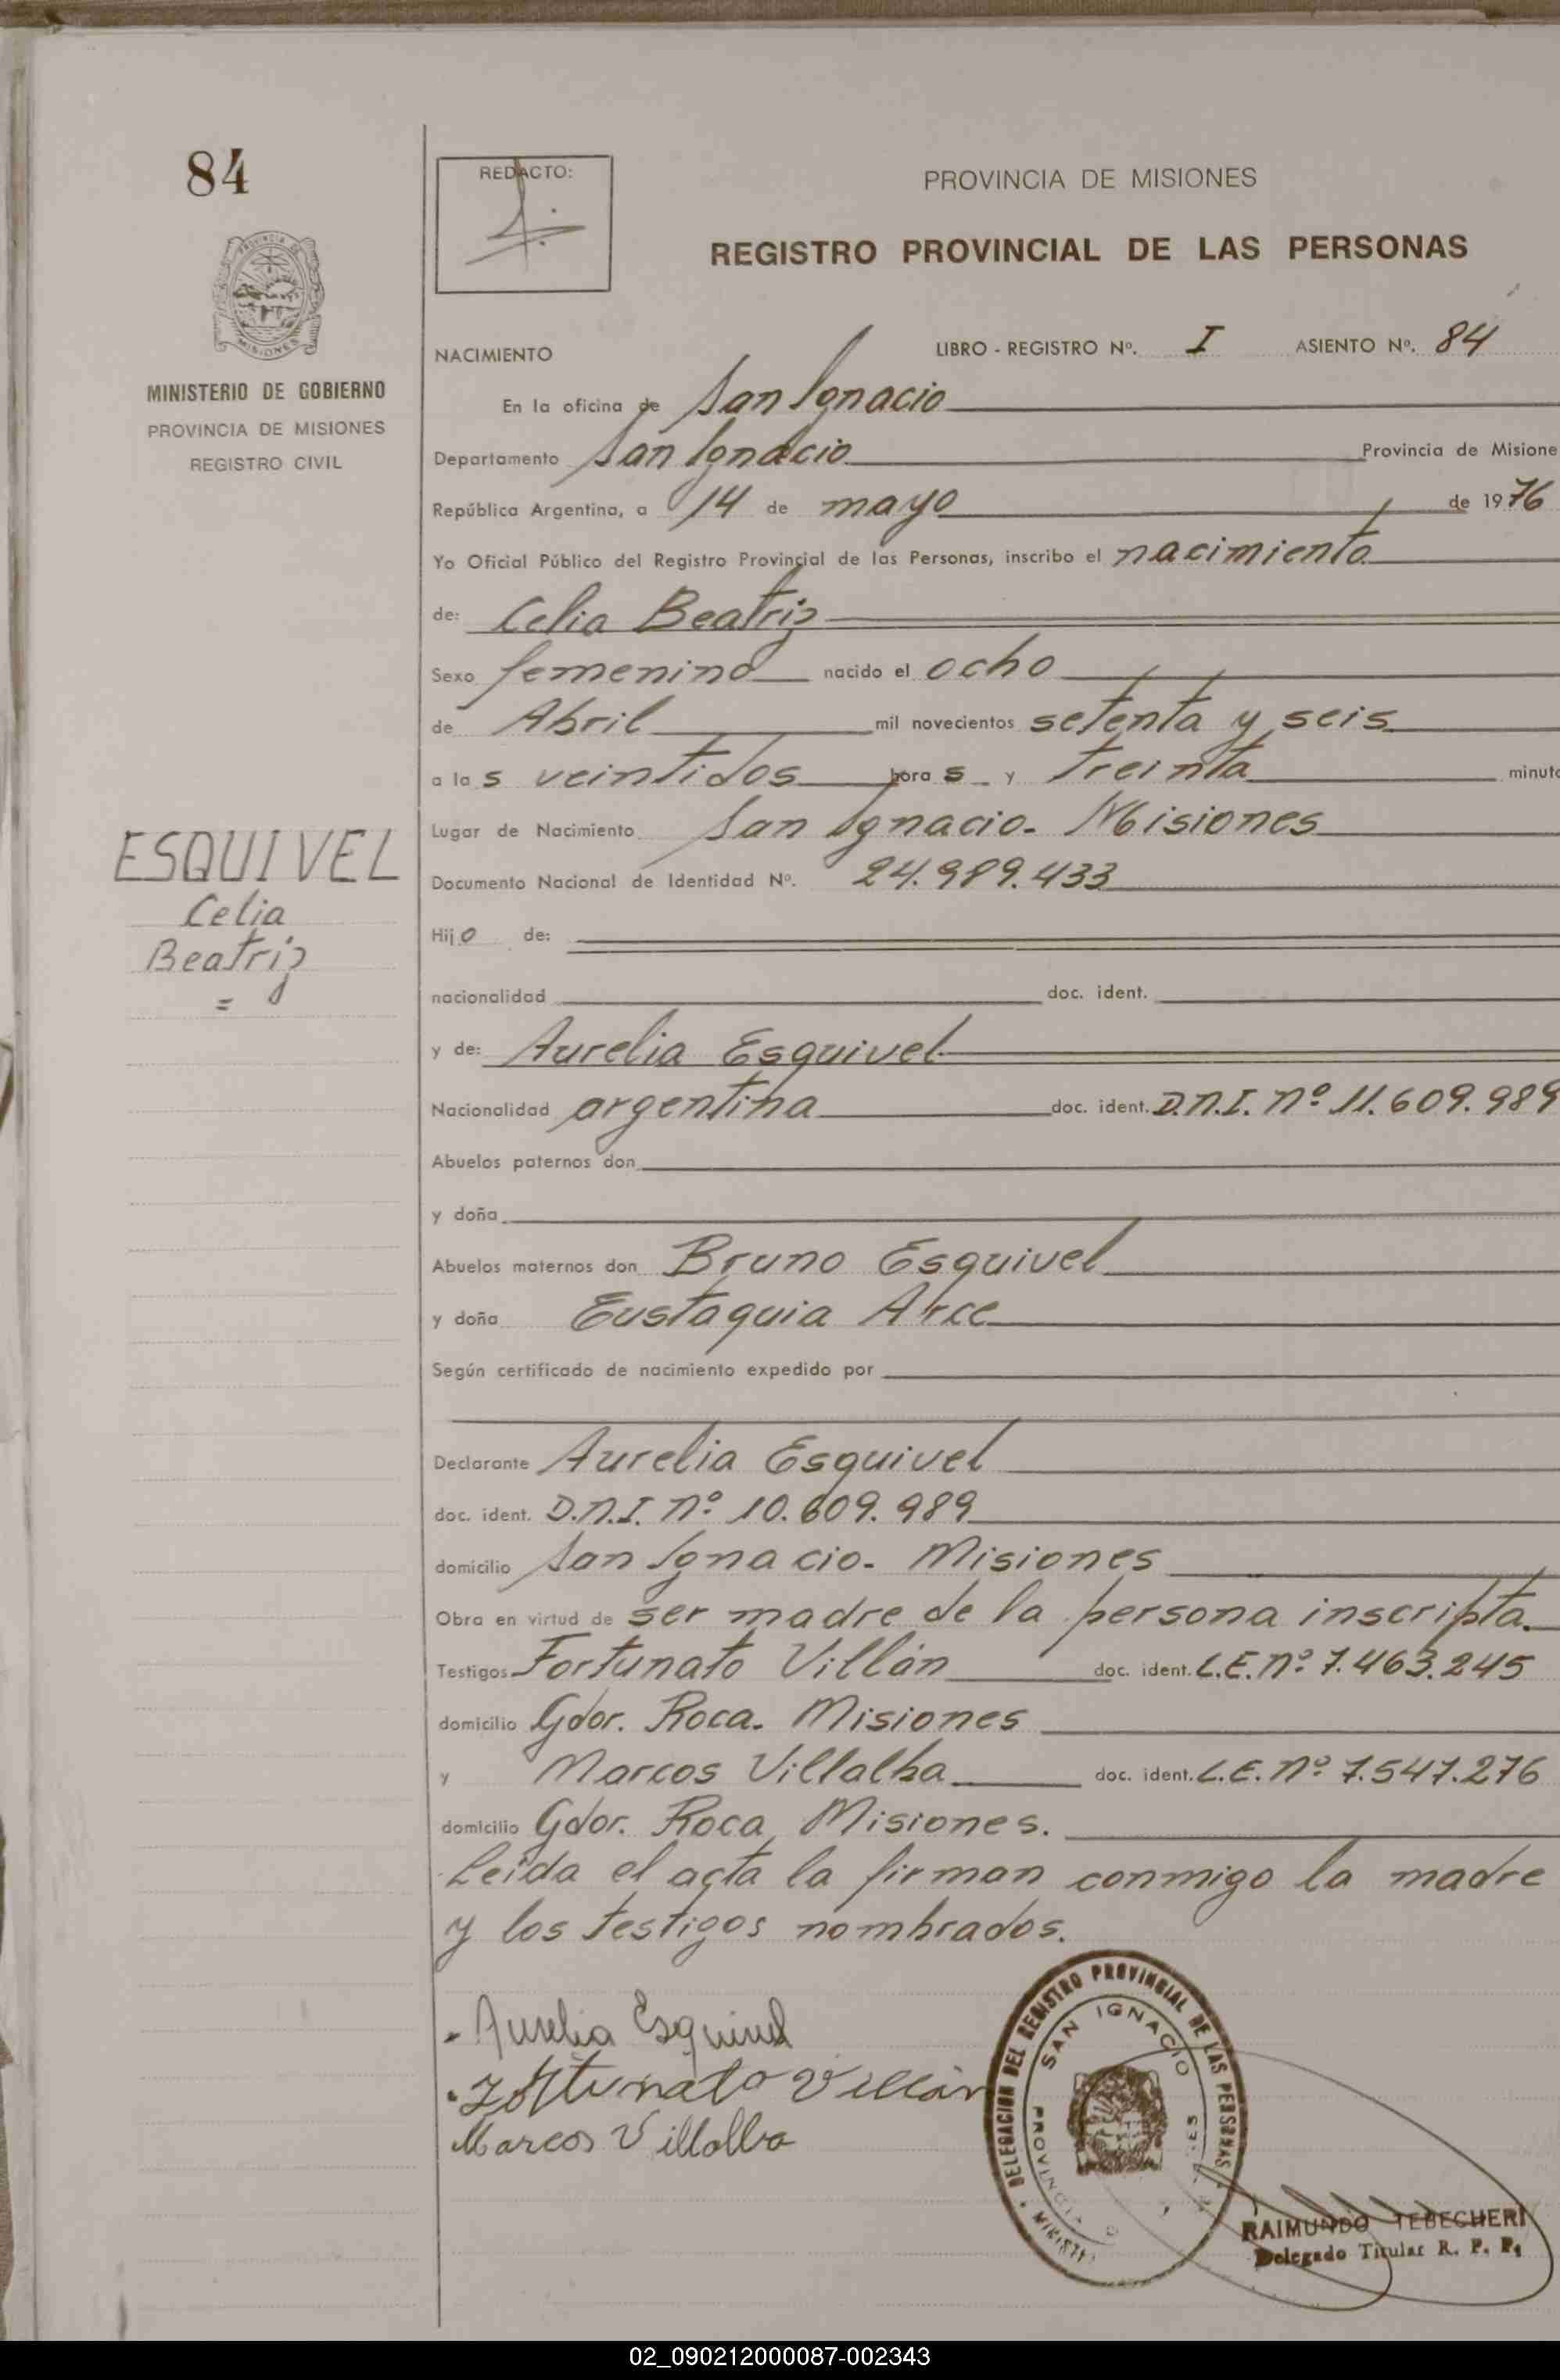 84
REDACTO:
PROVINCIA DE MISIONES
REGISTRO PROVINCIAL DE LAS PERSONAS
MISIONES
MINISTERIO DE GOBIERNO
PROVINCIA DE MISIONES
REGISTRO CIVIL
NACIMIENTO
LIBRO - REGISTRO Nº. I ASIENTO Nº. 84
En la oficina de San Ignacio
Departamento San Ignacio Provincia de Misione
República Argentina, a 14 de mayo de 1976
Yo Oficial Público del Registro Provincial de las Personas, inscribo el nacimiento
de: Celia Beatriz
Sexo femenino nacido el ocho
de Abril mil novecientos setenta y seis
a las veintidos horas y treinta minuto
Lugar de Nacimiento San Ignacio. Misiones
ESQUIVEL
Celia
Beatriz
=
Documento Nacional de Identidad Nº. 24.989.433
Hijo de:
nacionalidad doc. ident.
y de: Aurelia Esquivel
Nacionalidad argentina doc. ident. D.N.I. Nº 11.609.989
Abuelos paternos don
y doña
Abuelos maternos don Bruno Esquivel
y doña Eustaquia Arce
Según certificado de nacimiento expedido por
Declarante Aurelia Esquivel
doc. ident. D.N.I. Nº 10.609.989
domicilio San Ignacio. Misiones
Obra en virtud de ser madre de la persona inscripta.
Testigos Fortunato Villán doc. ident. L.E. nº 7.463.245
domicilio Gdor. Roca. Misiones
y Marcos Villalba doc. ident. L.E. nº 7.547.276
domicilio Gdor. Roca, Misiones.
Leída el acta la firman conmigo la madre
y los testigos nombrados.
Aurelia Esquivel
Fortunato Villán
Marcos Villalba
DELEGACION DEL REGISTRO PROVINCIAL DE LAS PERSONAS
SAN IGNACIO
PROVINCIA
RAIMUNDO TEBECHERI
Delegado Titular R. P. P.
02_090212000087-002343